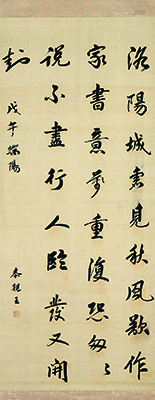 洛陽城裏見秋風欲作
家書意萬重復恐匆〻
說不盡行人臨發又開
封
戊午端陽
恭親王